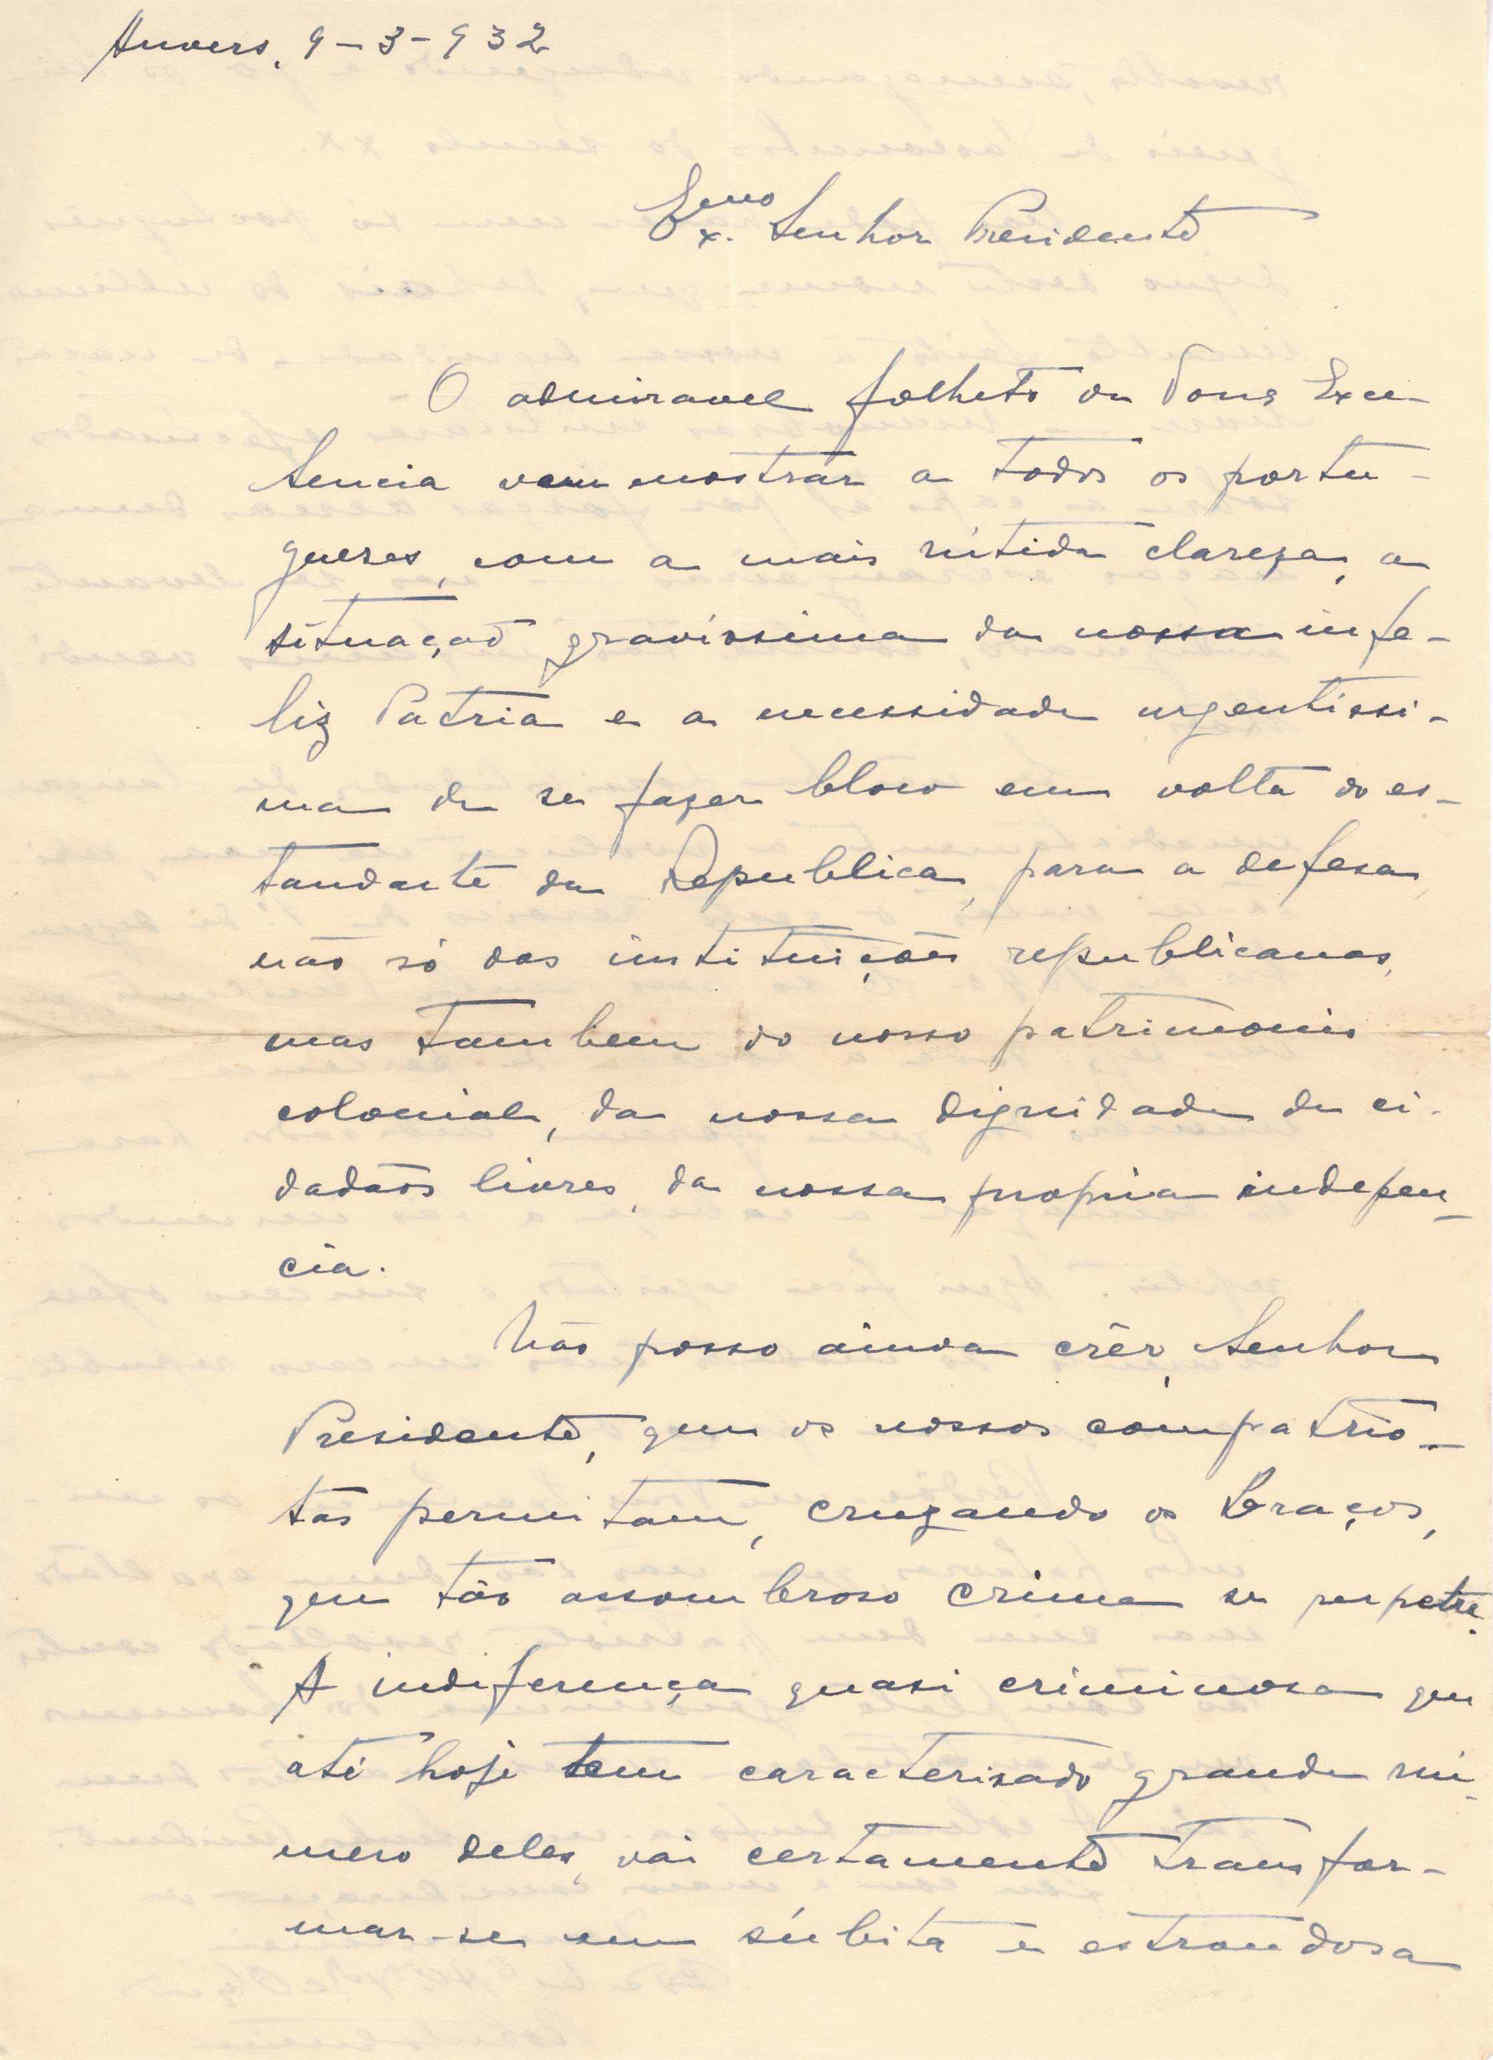 Anvers, 9-3-932
Exmo. Senhor Presidente
O admiravel folheto de Vossa Exce-
lencia vem mostrar a todos os portu-
gueses, com a mais nítida clareza, a
situação gravissima da nossa infe-
liz Patria e a necessidade urgentissi-
ma de se fazer bloco em volta do es-
tandarte da Republica, para a defesa,
não só das instituições republicanas,
mas tambem do nosso patrimonio
colonial, da nossa dignidade de ci-
dadãos livres, da nossa propria indepen-
cia.
Não posso ainda crêr, Senhor
Presidente, que os nossos compatrio-
tas permitam, cruzando os braços,
que tão assombroso crime se perpetre.
A indiferença quasi criminosa que
até hoje tem caracterisado grande nú-
mero deles, vai certamente transfor-
mar-se em súbita e estrondosa